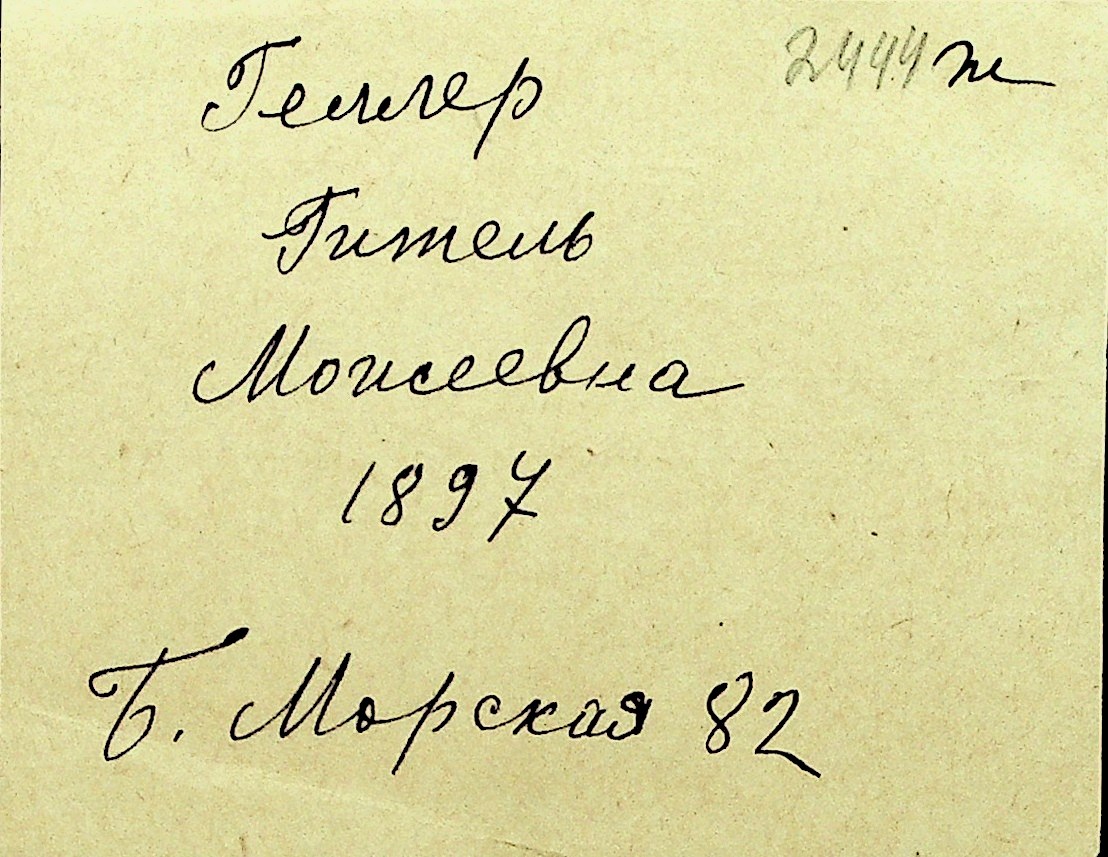 2444 ж
Геллер
Гитель
Моисеевна
1897
Б. Морская 82